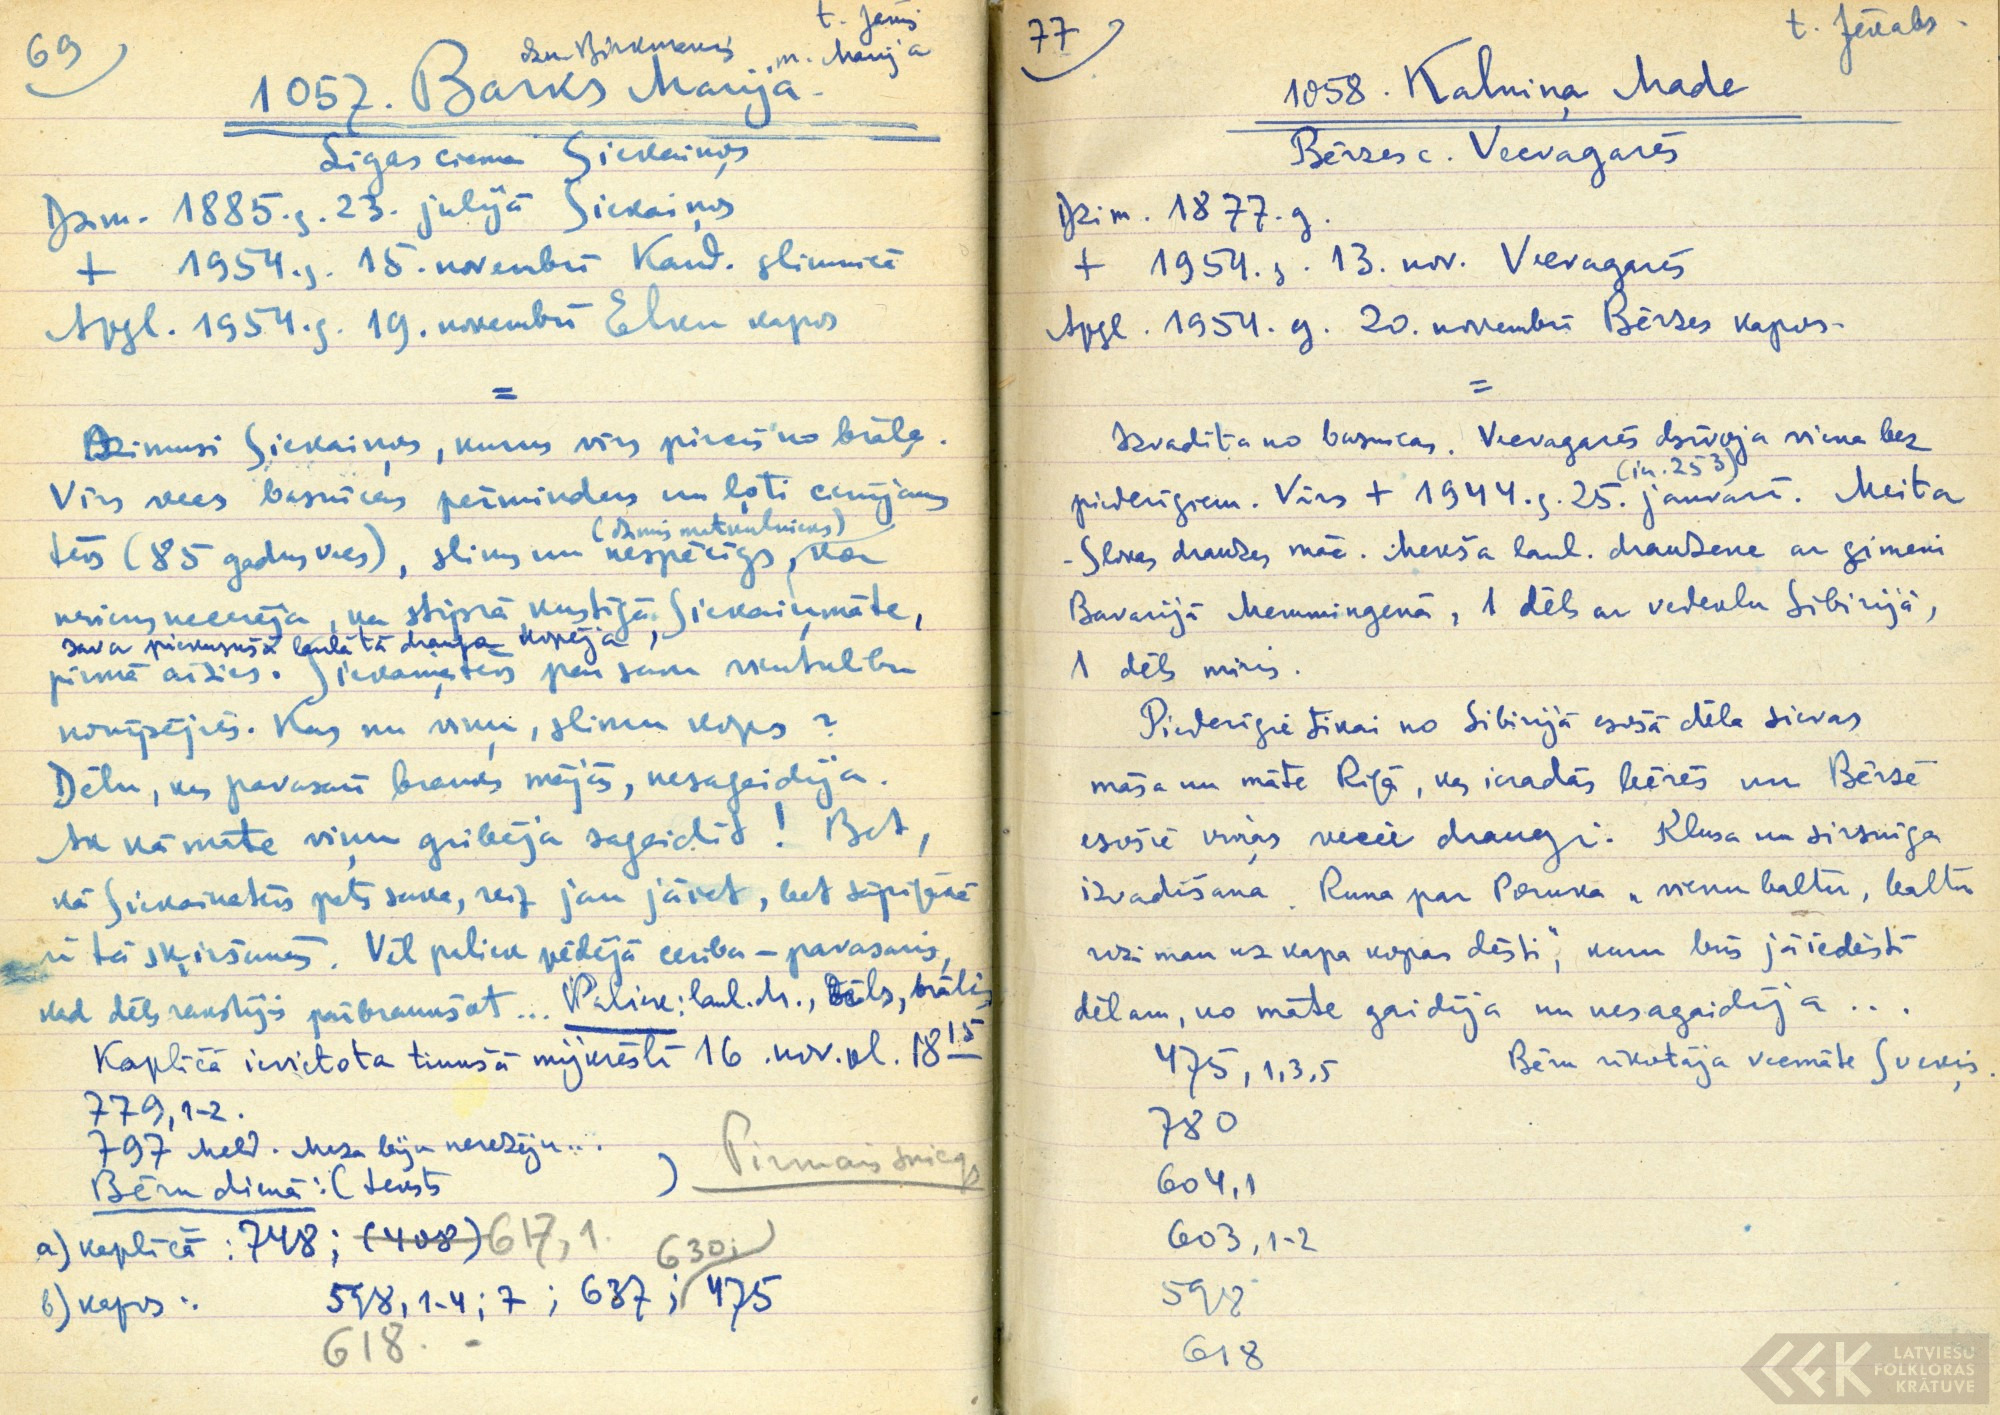 69
t. Janis
dzim. Birkmanis, m. Marija
1057. Barks Marija.
Līgas ciema Siekaiņos
Dzim. 1885.g. 23. julijā Siekaiņos
+ 1954.g. 15. novembrī Kand. slimnīcā
Apgl. 1954.g. 19. novembrī Elku kapos
=
Dzimusi Siekaiņos, kurus vīrs pircis no brāļa.
Vīrs vecs baznīcas pērminders un ļoti cienījams
(dzimis matkulnieks)
tēvs (85 gadus vecs), slims un nespēcīgs, kas
neviens necerēja, ka stiprā, kustīgā Siekaiņmāte,
sava piekusušā laulātā drauga kopēja,
pirmā aizies. Siekaiņtēvs par savu vientulību
norūpējies. Kas nu viņu, slimu kops?
Dēlu, kas pavasarī brauks mājās, nesagaidīja.
Ak kā māte viņu gribēja sagaidīt! Bet,
kā Siekaiņtēvs pats saka, reiz jau jāiet, bet sāpīgākā
ir tā šķiršanās. Vēl paliek pēdējā cerība – pavasaris,
kad dēls rakstījis pārbraukšot... Paliek: laul. dr., dēls, brālis
Kapličā ievietota tumšā mijkrēslī 16. nov. pl. 18 15
779, 1-2.
797 Meld. Meza leju nerežēju...
Bēru dienā: (teksts )
Pirmais sniegs
a) kapličā: 748; (408) 617, 1.
630;
b) kapos: 598, 1-4; 7; 637; 475
618. -
77
t. Jēkabs.
1058. Kalniņa Made
Bērzes c. Vecvagarēs
Dzim. 1877.g.
+ 1954.g. 13. nov. Vecvagarēs
Apgl. 1954.g. 20. novembrī Bērzes kapos.
=
Izvadīta no baznīcas. Vecvagarēs dzīvoja viena bez
(in. 253)
piederīgiem. Vīrs + 1944.g. 25. janvarī. Meita
- Slokas draudzes māc. Mekša laul. draudzene ar ģimeni
Bavarijā Memmingenā, 1 dēls ar vedeklu Sibirijā,
1 dēls miris.
Piederīgie tikai no Sibirijā esošā dēla sievas
māsa un māte Rīgā, kas ieradās bērēs un Bērzē
esošie viņas vecie draugi. Klusa un sirsnīga
izvadīšana. Runa par Poruka "vienu baltu, baltu
rozi man uz kapa kopas dēsti", kuru būs jāiedēsti
dēlam, ko māte gaidīja un nesagaidīja...
475, 1, 3, 5 Bēru rīkotāja vecmāte Svekis.
780
604, 1
603, 1-2
598
618
LATVIEŠU
FOLKLORAS
KRĀTUVE